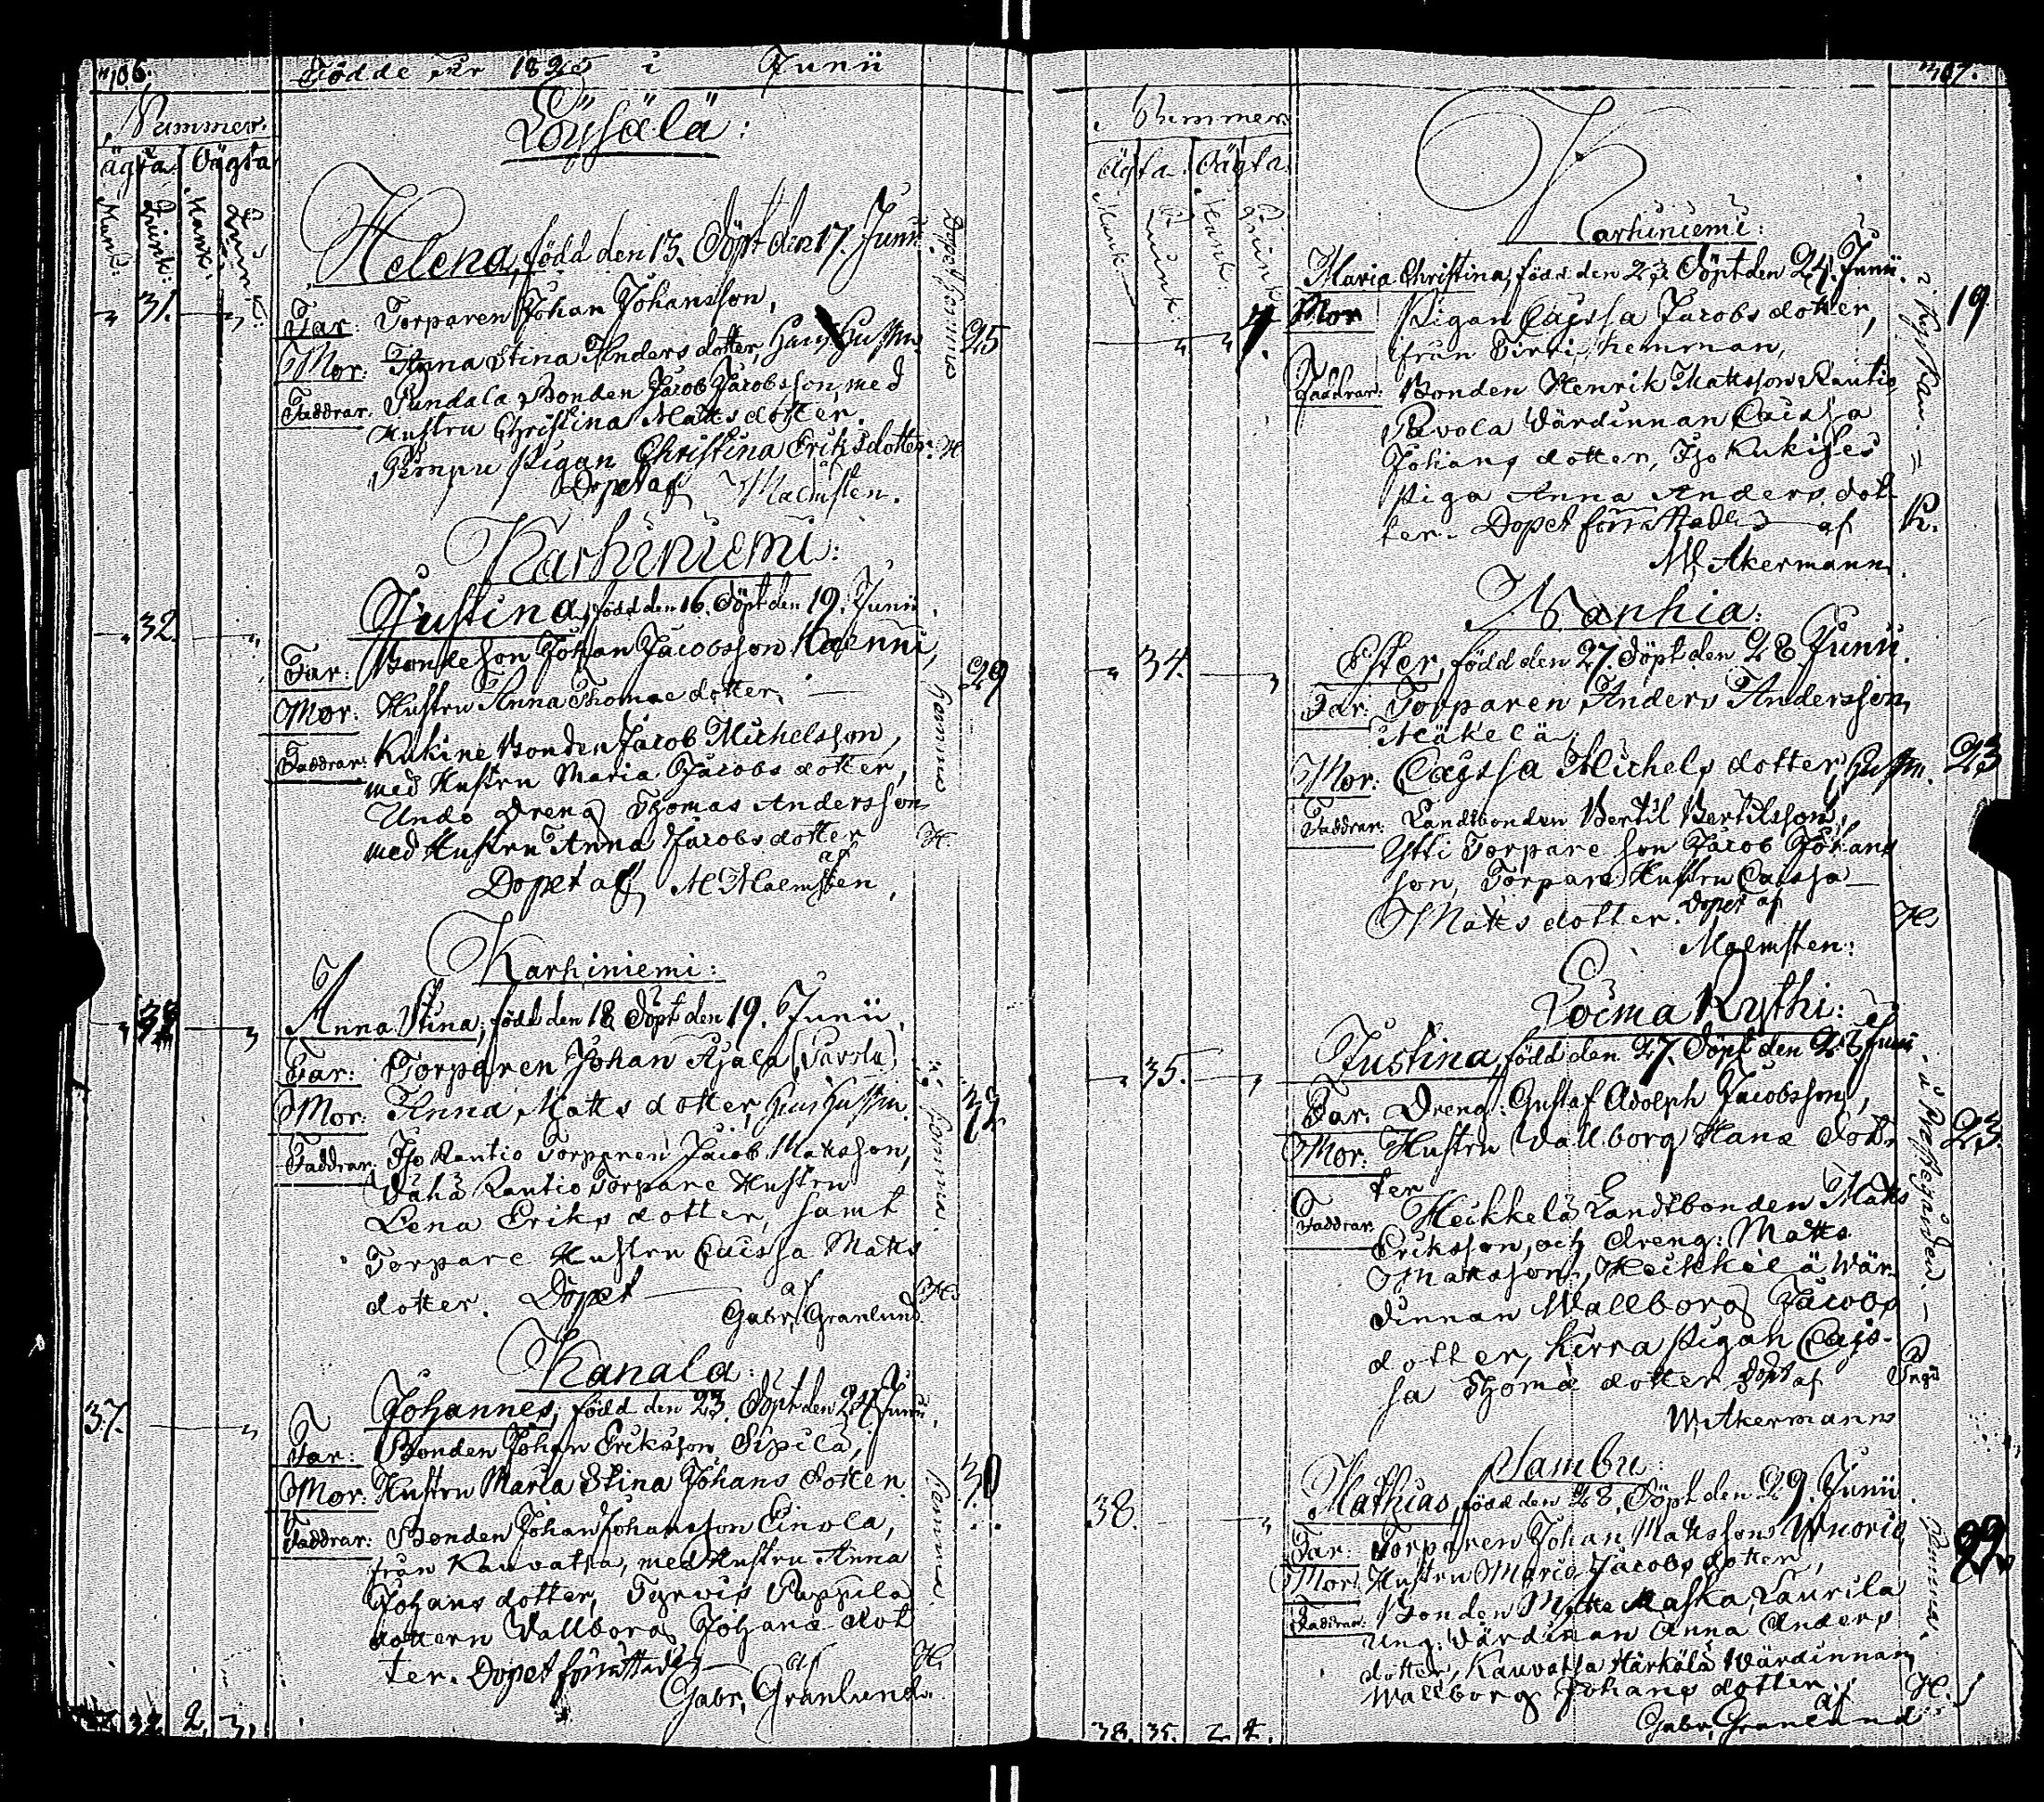 "106.
Födde År 1825 i Junii
Nummer.
ägta. Oägta
Mank: Qvink: Mank: Qvink:
Löysälä:
Helena, född den 13. Döpt den 17. Junii
31.
Far: Torparen Johan Johansson,
Mor: Anna Stina Anders dotter, hans Hustru.
25
Döpt hemma
Faddrar: Pundala Bonden Jacob Jacobsson, med
Hustru Christina Matts dotter.
Pimpu Pigan Christina Eriksdotter.
H
Dopet af Malmsten.
Karhiniemi:
Justina, född den 16. Döpt den 19. Junii
32.
Far: Bonde Son Johan Jacobsson Kaenni,
Mor: Hustru Anna Thomae dotter.
29
hemma
Faddrar: Kukine Bonden Jacob Michelsson,
med Hustru Maria Jacobs dotter,
Undo Dreng Thomas Andersson
med Hustru Anna Jacobsdotter
H.
Dopet af M Malmsten,
Karhiniemi:
33
Anna Stina, född den 18 Döpt den 19. Junii,
Far: Torparen Johan Ajala (Pavola)
Mor: Anna Matts dotter, hans Hustru.
32
hemma.
Faddrar: Iso Rantio Torparen Jacob Matsson,
Vähä Rantio Torpare Hustru
Lena Eriks dotter, samt
Torpare Hustru Caissa Matts
dotter. Dopet af
Gabr. Granlund
Kanala:
Johannes, född den 23. Döpt den 24 Junii,
37.
Far: Bonden Johan Eriksson Sipilä,
Mor: Hustru Maria Stina Johans dotter.
30
hemma.
Faddrar: Bonden Johan Johansson Einola,
från Kauvatsa, med Hustru Anna
Johans dotter, Tyrvis Pappila
dottern Vallborg Johans dot
ter. Dopet förrättades af
H.
Gabr. Granlund.
2. 3.
107.
Nummer
ägta. Oägta.
Mank. Qvink. Mank. Qvink.
Karhiniemi:
Maria Christina, född den 23 Döpt den 24. Junii.
4.
Mor Pigan Cajssa Jacobs dotter,
från Pirri hemman,
19
Faddrar: Bonden Henrik Mattsson Rantio
Pavola Värdinnan Caissa
Johans dotter, Iso Kukises
piga Anna Anders dot
ter. Dopet förrättades af
M Akermann.
Wanhia:
Ester, född den 27. Döpt den 28 Junii.
34.
Far: Torparen Anders Andersson
Mäkelä,
Mor: Cayssa Michels dotter, Hustru.
23
Faddrar: Landtbonden Bertil Bertilsson,
Ytti Torpare Son Jacob Johans
son, Torpare Hustru Caissa
Matts dotter. Dopet af
Malmsten:
Loima Kythi:
Justina, född den 27. Döpt den 28 Junii
35.
Far. Dreng: Gustaf Adolph Jacobsson,
Mor: Hustru Vallborg Hans dot
ter
23.
i Prestegården.
Faddrar: Heikkelä Landtbonden Matts
Eriksson, och dreng: Matts
Matsson, Heikkelä Wär
dinnan Wallborg Jacobs
dotter, Kirra pigan Cajs
sa Thomae dotter Döpt af
W. Akermann
Sambu:
Mathias, född den 28. Döpt den 29. Junii.
38.
Far: Torparen Johan Matsson Wuorio
Mor: Hustru Maria Jacobs dotter,
hemma
Faddrar: Bonden Matts Maska, Laurila
ung: Värdinan Anna Anders
dotter, Kauvatsa Härkälä Wärdinnan
Wallborg Johans dotter. af
H.
Gabr. Granlund
38. 35. 2. 4.